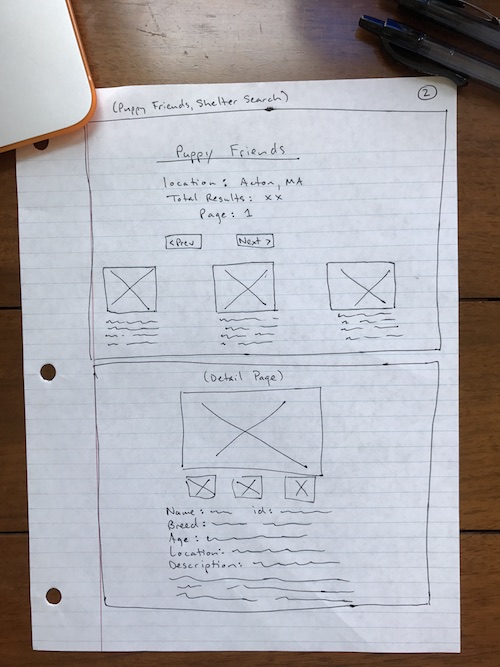 (Puppy Friends, Shelter Search)
2
Puppy Friends
location: Acton, MA
Total Results: xx
Page: 1
<Prev
Next >
(Detail Page)
Name: id:
Breed:
Age:
Location:
Description: